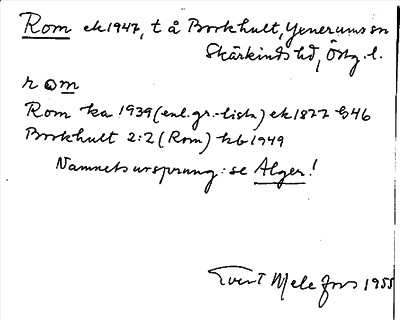 Rom ek 1947, t å Borkhult, Yxnerums sn
Skärkinds hd, Östg. l.
rom
Rom ka 1939 (enl. gr.-lista) ek 1877 G46
Borkhult 2:2 (Rom) kb 1949
Namnets ursprung: se Alger!
Evert Melefors 1955